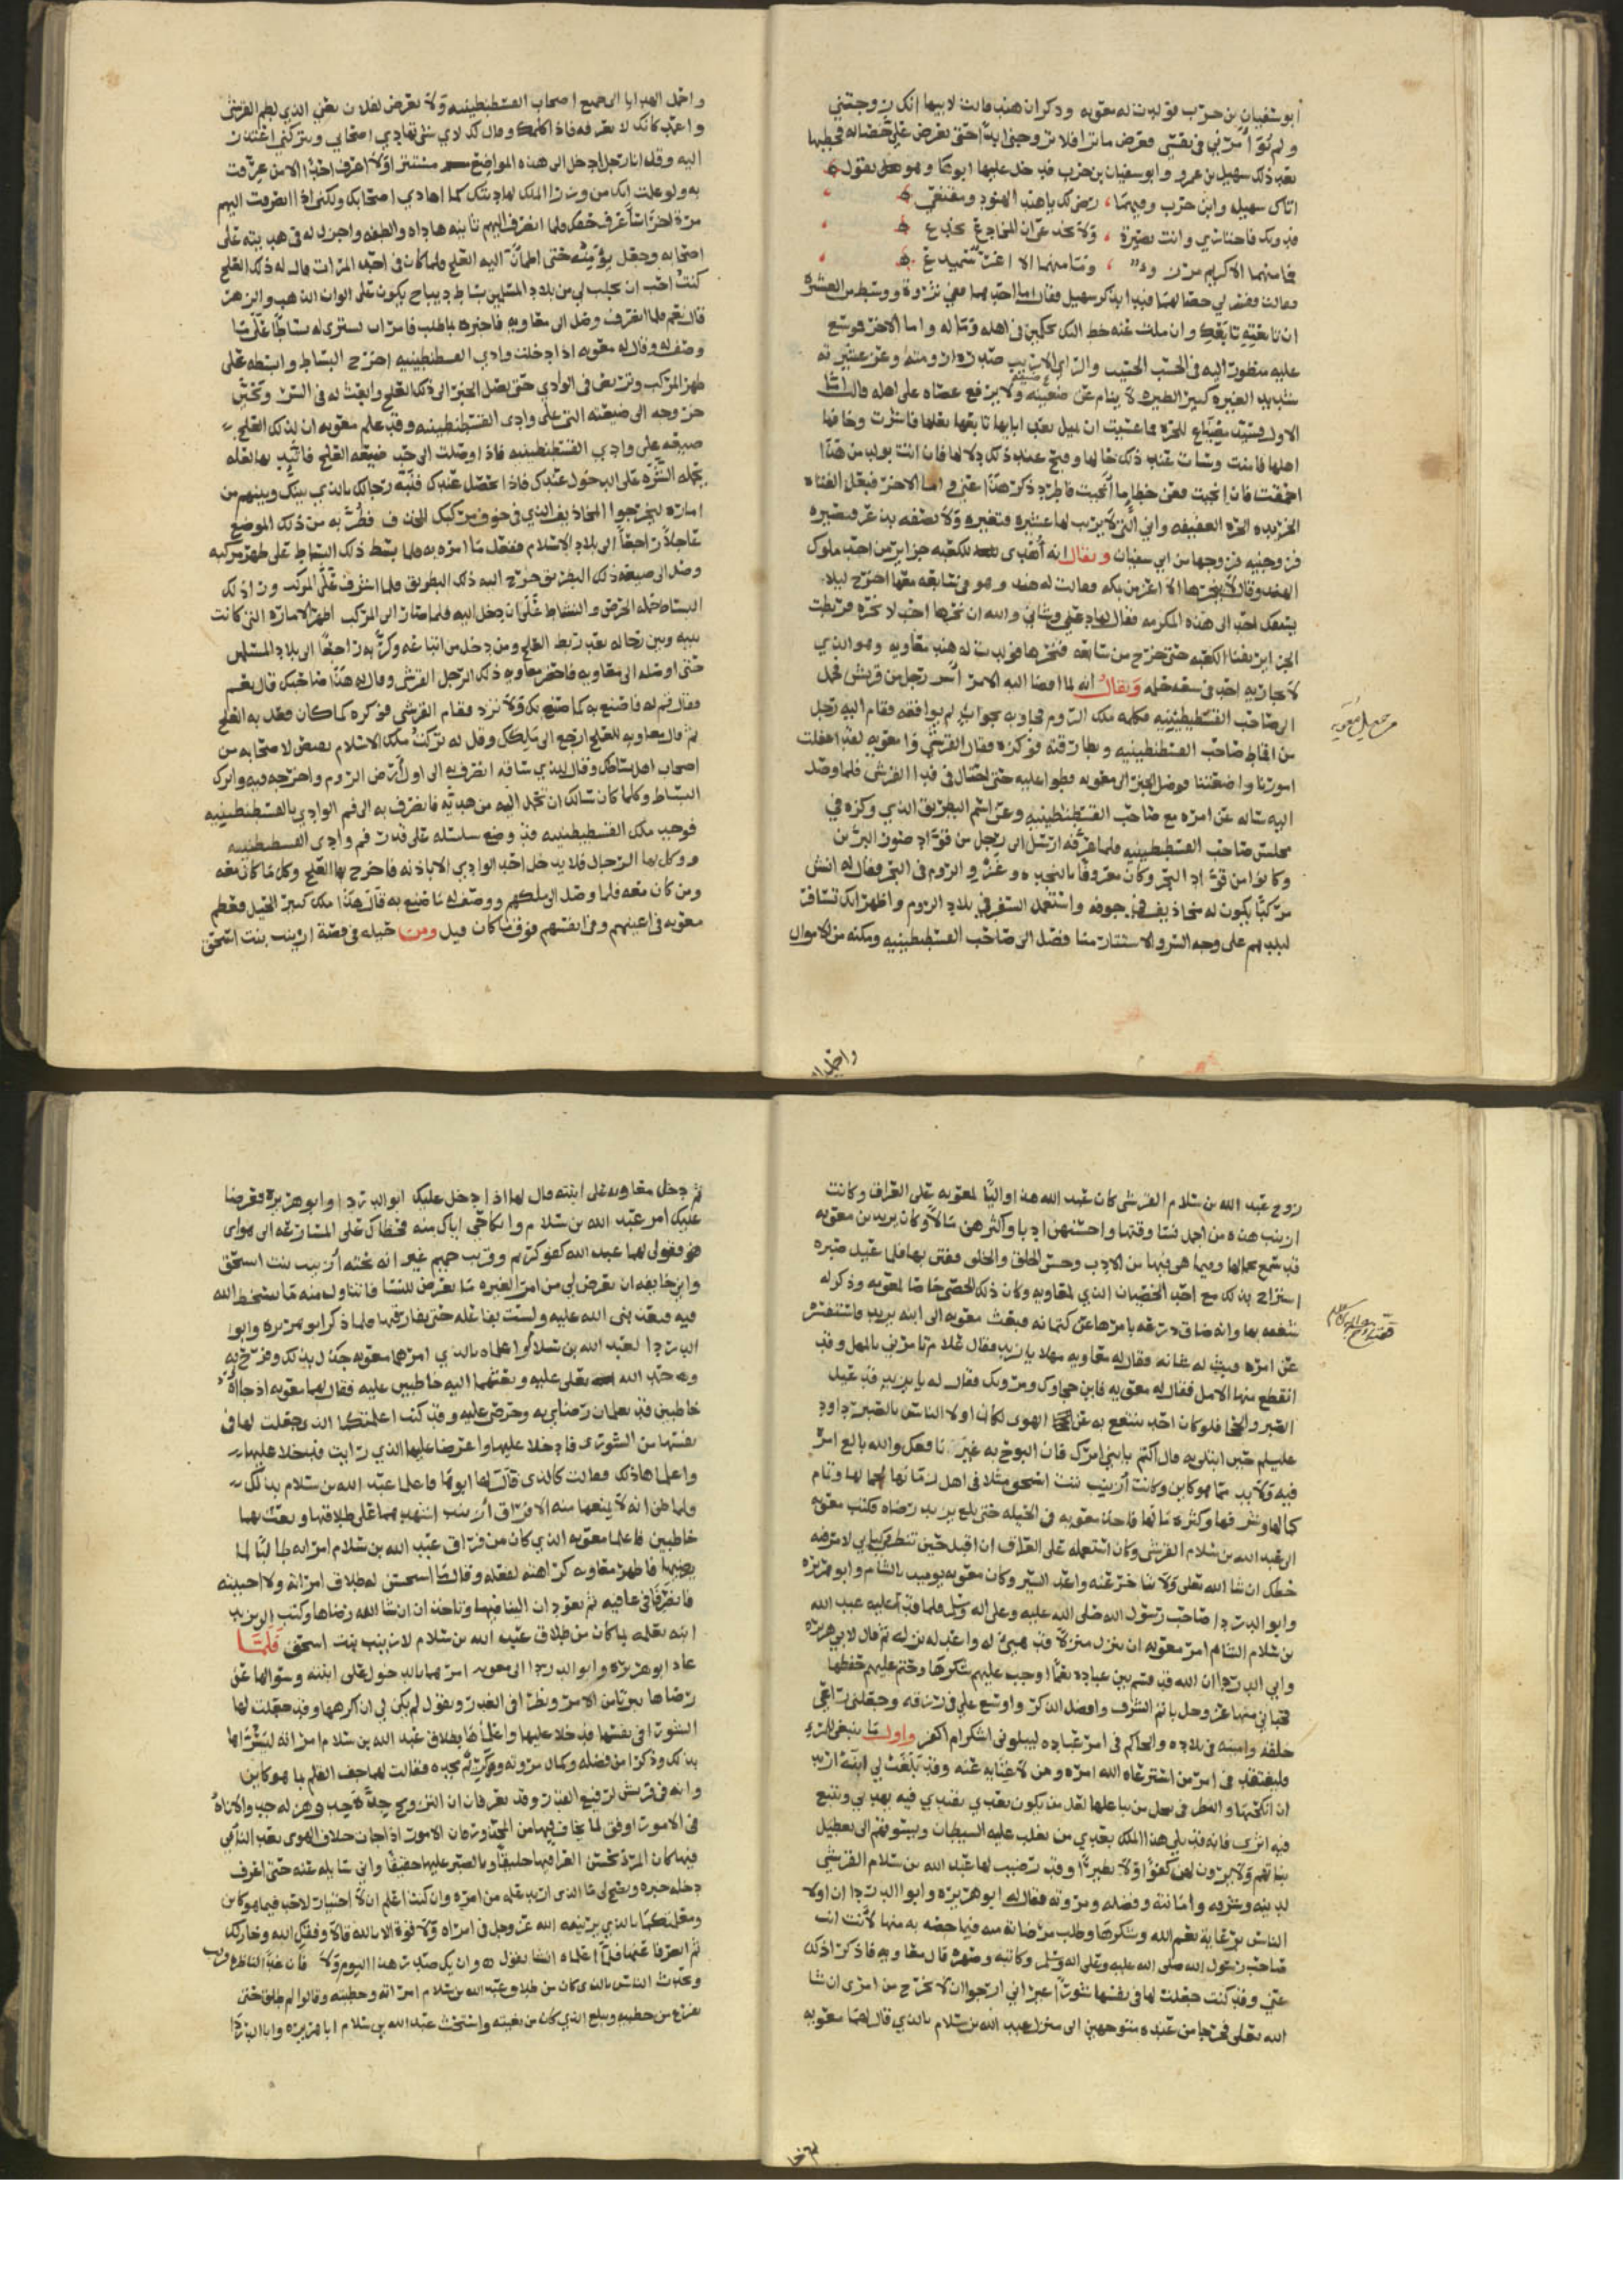 ابو سفيان بن حرب فولدت له معويه وذكر ان هند قالت لابيها انك زوجتني
ولم تؤامرني في نفسي فعرض ما ترا فلا تزوجني ابدًا حتى تعرض علي خصاله فخطبها
بعد ذلك سهيل بن عمرو وابو سفيان بن حرب فدخل عليها ابوها وهو يقول
اتاك سهيل وابن حرب وفيهما رضى لك يا هند الهنود ومقنع
فدونك فاختاري وانت بصيرة ولا تخدعي ان المخادع يخدع
فقالت فصف لي خصالهما فبدا بذكر سهيل فقال اما احدهما ففي ثروة ووسط من العشيرة
ان تابعتيه تابعك وان ملت عنه حط اليك تحكمين في اهله وماله واما الاخر فوسع
عليه منظور اليه في الحسب الحسيب والراي الاريب
شديد الغيره كبير الطيره لا ينام عن ضيعته ولا يرفع عصاه على اهله قالت اما
الاول فسيد مضياع للحرة فما عست ان تميل بعد ابايها تابعها بعلها فاشرت وخافها
اهلها فامنت وسات عند ذلك حالها وقبح عند ذلك دلالها فان انت بولد من هذا
احمقت فان انجبت فعن خطا ما انجبت فاطو ذكر هذا عني واما الاخر فبعل الفتاه
الخريده الحره العفيفه
فزوجنيه فزوجها من ابي سفيان ويقال انه اهدى للكعبه جزاير من احد ملوك
الهند وقال لا ينحرها الا اعز من بمكه فقالت له هند وهو في سابعه معها اخرج ليلا
يسبقك احد الى هذه المكرمه فقال لها دعيني وشاني والله ان نحرها احد لا نحره فربطت
الجزاير بفنا الكعبه حتى خرج من سابعه فنحرها فولدت له هند معاويه وهو الذي
لا يجاريه احد في سعه حلمه ويقال انه لما افضا اليه الامر اسر رجل من قريش فحمل
الى صاحب القسطنطينيه فكلمه ملك الروم فجاوبه بجواب لم يوافقه فقام اليه رجل
من اقباط صاحب القسطنطينيه وبطارقته فوكزه فقال القرشي وا معويه لقد اغفلت
امورنا واضعتنا فوصل الخبر الى معويه فطوا عليه حتى احتال في فدا القرشي فلما وصل
اليه ساله عن امره مع صاحب القسطنطينيه وعن اسم البطريق الذي وكزه في
مجلس صاحب القسطنطينيه فلما عرفه ارسل الى رجل من قواد صور البر من
وكان من قواد البحر وكان معروفا بالنجده وغزو الروم في البحر فقال له انش
مركبًا يكون له مخاذيف في جوفه واستعمل السفر في بلاد الروم واظهر انك تسافر
لبلدهم على وجه السر والاستتار منا فصل الى صاحب القسطنطينيه ومكنه من الاموال
واحمل الهدايا الى جميع اصحاب القسطنطينيه ولا تعرض لفلان يعني الذي لطم القرشي
واعمد كانك لا تعرفه فاذا كلمك وقال لك لاي شي تهادي اصحابي وتتركني اعتذر
اليه وقل انا رجل ادخل الى هذه المواضع مستترا ولا اعرف احدًا الا من عرفت
به ولو علمت انك من وزرا الملك لهاديتك كما اهادي اصحابك ولكني اذا انصرفت اليهم
مرة اخرا ساعرف حقك فلما انصرف اليهم ثانيه هاداه والطفه واجزل له في هديته على
اصحابه وجعل يؤنسه حتى اطمان اليه العلج فلما كان في احد المرات قال له ذلك العلج
كنت احب ان تجلب لي من بلاد المسلمين بساط ديباج يكون على الوان الذهب والزهر
قال نعم فلما انصرف وصل الى معاويه فاخبره بما طلب فامر ان يشتري له بساطًا على ما
وصف له وقال له معويه اذا دخلت وادي القسطنطينيه اخرج البساط وابسطه على
ظهر المركب وتربص في الوادي حتى يصل الخبر الى ذلك العلج وابعث له في السر وتحين
خروجه الى ضيعته التي على وادي القسطنطينيه وقد علم معويه ان لذلك العلج
ضيعه على وادي القسطنطينيه فاذا وصلت الى حد ضيعة العلج
يحمله الشره على الدخول عندك فاذا حصل عندك فنبه رجالك بالذي بينك وبينهم من
اماره ليخرجوا المخاذيف الذي في جوف مركبك فطر به من ذلك الموضع
عاجلا راجعًا الى بلاد الاسلام ففعل ما امره به فلما بسط ذلك البساط على ظهر مركبه
وصل الى ضيعه ذلك البطريق خرج اليه ذلك البطريق فلما اشرف على المركب وراى ذلك
البساط حمله الحرص والنشاط على ان دخل اليه فلما صار الى المركب اظهر الاماره التي كانت
بينه وبين رجاله بعد ربط العلج ومن دخل من اتباعه وكر به راجعًا الى بلاد المسلمين
حتى اوصله الى معاويه فاحضر معاويه ذلك الرجل القرشي وقال له هذا صاحبك قال نعم
فقال قم له فاصنع به كما صنع بك ولا تزد فقام القرشي فوكزه كما كان فعل به العلج
ثم قال معاويه للعلج ارجع الى ملكك وقل له تركت ملك الاسلام يقتص لاصحابه من
اصحاب بساطك وقال للذي ساقه انصرف به الى اول ارض الروم واخرجه فيه واترك
البساط وكلما كان سالك ان تحمل اليه من هديه فانصرف به الى فم الوادي بالقسطنطينيه
فوجد ملك القسطنطينيه قد وضع سلسله على فم وادي القسطنطينيه
ووكل بها الرجال فلا يدخل احد الوادي الا باذنه فاخرج بها العلج وكل ما كان معه
ومن كان معه فلما وصل الى ملكهم ووصف له ما صنع به قال هذا ملك كبير الحيل فعظم
معويه في اعينهم وفي انفسهم فوق ما كان قيل ومن حيله في قصة ارينب بنت اسحق
واحمل ا
زوج عبد الله بن سلام القرشي كان عبد الله هذا واليًا لمعويه على العراق وكانت
ارينب هذه من اجمل نسا وقتها واحسنهن ادبا واكثرهن مالا وكان يزيد بن معويه
قد سمع بجمالها وبما هي فيها من الادب وحسن الخلق والخلق ففتن بها فلما عيل صبره
استراح بذلك مع احد الخصيان الذي لمعاويه وكان ذلك الخصي خاصا لمعويه وذكر له
شغفه بها وانه ضاق ذرعه بامرها عن كتمانه فبعث معويه الى ابنه يزيد فاستفسره
عن امره فبث له شانه فقال له معاويه مهلا يا يزيد فقال علام تامرني بالمهل وقد
انقطع منها الامل فقال له معويه فاين حجاوك ومروتك فقال له يا يزيد قد عيل
الصبر والحجا فلو كان احد ينتفع به عن الهوى لكان اولا الناس بالصبر داود
عليه السلم حين ابتلى به قال اكتم يا بني امرك فان البوح به غير نافعك والله بالغ امره
فيه ولا بد مما هو كاين وكانت ارينب بنت اسحق مثلا في اهل زمانها لجمالها وتمام
كمالها وشرفها وكثرة مالها فاخذ معويه في الحيله حتى يبلغ يزيد رضاه فكتب معويه
الى عبد الله بن سلام القرشي وكان استعمله على العراق ان اقبل حين تنظر كتابي لامر فيه
حظك ان شا الله تعلى ولا تتاخر عنه واغذ السير وكان معويه يوميذ بالشام وابو هريره
وابو الدردا صاحب رسول الله صلى الله عليه وعلى اله وسلم فلما قدم عليه عبد الله
بن سلام الشام امر معويه ان ينزل منزلا قد هيئ له واعد له نزله ثم قال لابي هريره
وابي الدردا ان الله قد قسم بين عباده نعمًا اوجب عليهم شكرها وحتم عليهم حفظها
فحباني منها عز وجل باتم الشرف وافضل الذكر واوسع علي في رزقه وجعلني راعي
خلقه وامينه في بلاده والحاكم في امر عباده ليبلوني اشكر ام اكفر واول ما ينبغي للمرء
قصة زوج عبد الله بن سلام
ان انكحها والنظر في بعل من يباعلها لعل من يكون بعدي يقتدي فيه بهديي ويتبع
فيه اثري فانه قد يلي هذا الملك بعدي من يغلب عليه الشيطان ويسوقهم الى تعطيل
بناتهم ولا يرون لهن كفؤا ولا نظيرا وقد رضيت لها عبد الله بن سلام القرشي
لدينه وشرفه وامانته وفضله ومروته فقال له ابو هريره وابو الدردا ان اولا
الناس برعاية نعم الله وشكرها وطلب مرضاته منه فيما خصه به منها لانت انت
صاحب رسول الله صلى الله عليه وعلى اله وسلم وكاتبه وصهره قال معاويه فاذكرا ذلك
عني وقد كنت جعلت لها في نفسها شورًا غير اني ارجوا ان لا تخرج من امري ان شا
الله تعلى فخرجا من عنده متوجهين الى منزل عبد الله بن سلام بالذي قال لهما معويه
ثم دخل معاويه على ابنته قال لها اذا دخل عليك ابو الدردا وابو هريره فعرضا
عليك امر عبد الله بن سلام وانكاحي اياك منه فحضاك على المسارعه الى هواى
فقولي لهما عبد الله كفو كريم وقريب حميم غير انه تحته ارينب بنت اسحق
وانى خايفه ان يعرض لي من امر الغيره ما يعرض للنسا فاتناول منه ما يسخط الله
فيه فيعذبني الله عليه ولست بفاعله حتى يفارقها فلما ذكر ابو هريره وابوا
الدردا لعبد الله بن سلام واعلماه بالذي امرهما معويه جذل بذلك وفرح به
وحمد الله تعلى عليه وبعثهما اليه خاطبين عليه فقال لهما معويه اذ جااه
خاطبين قد تعلمان رضاي به وحرصي عليه وقد كنت اعلمتكما الذي جعلت لها في
نفسها من الشورى فادخلا عليها واعرضا عليها الذي رايت فدخلا عليها
واعلماها ذلك فقالت كالذي قال لها ابوها فاعلما عبد الله بن سلام بذلك
ولما ظن انه لا يمنعها منه الا فراق ارينب اشهدهما على طلاقها وبعث بهما
خاطبين فاعلما معويه الذي كان من فراق عبد الله بن سلام امراته طالبًا لما
يرضيها فاظهر معاويه كراهته لفعله وقال ما استحسن له طلاق امراته ولا احببته
فانصرفا في عافيه ثم تعودان الينا فيها وتاخذان ان شا الله رضاها وكتب الى يزيد
ابنه يعلمه بما كان من طلاق عبد الله بن سلام لارينب بنت اسحق فلما
عاد ابو هريره وابو الدردا الى معويه امرهما بالدخول على ابنته وسوالها عن
رضاها تبريا من الامر ونظرا في القدر ويقول لم يكن لي ان اكرهها وقد جعلت لها
الشورا في نفسها فدخلا عليها واعلماها بطلاق عبد الله بن سلام امراته ليسرها
بذلك وذكرا من فضله وكمال مروته وكرم محتده فقالت لهما جف القلم بما هو كاين
وانه في قريش لرفيع القدر وقد تعرفان ان التزويج جده جد وهزله جد والاناه
في الامور اوفق لما يخاف فيها من المحذور فان الامور اذا جات خلاف الهوى بعد التاني
فيها كان المرء بحسن العزا فيها خليقًا وبالصبر عليها حقيقًا واني سايله عنه حتى اعرف
دخله خبره ويصح لي ما الذي اريد علمه من امره وان كنت اعلم ان لا اختيار لاحد فيما هو كاين
ومعلمتكما بالذي يريبنيه الله عز وجل في امره ولا قوة الا بالله قالا وفقك الله وخار لك
ثم انصرفا عنها فلما اعلماه انشا يقول وان يك صدر هذا اليوم ولا فان غدا لناظره قريب
وتحدث الناس بالذي كان من طلاق عبد الله بن سلام امراته وخطبته وقالوا لم طلق حتى
يفرغ من خطبته ويبلغ الذي كان من بغيته واستحث عبد الله بن سلام ابا هريره وابا الدردا